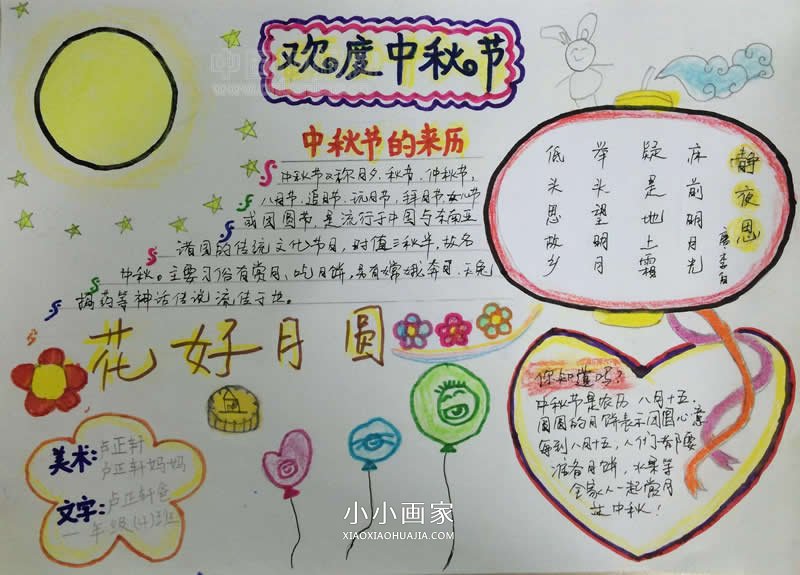 欢度中秋节
中秋节的来历
中秋节又称月夕、秋节、仲秋节、
八月节、追月节、玩月节、拜月节、女儿节
或团圆节，是流行于中国与东南亚
诸国的传统文化节日，时值三秋半，故名
中秋。主要习俗有赏月、吃月饼，另有嫦娥奔月、玉兔
捣药等神话传说流传于世。
静夜思
唐 李白
床前明月光
疑是地上霜
举头望明月
低头思故乡
花好月圆
你知道吗？
中秋节是农历八月十五，
圆圆的月饼表示团圆心意
每到八月十五，人们都要
准备月饼，水果等
全家人一起赏月
过中秋！
美术：卢正轩
卢正轩妈妈
文字：卢正轩爸
一年级(4)班
小小画家
XIAOXIAOHUAJIA.COM